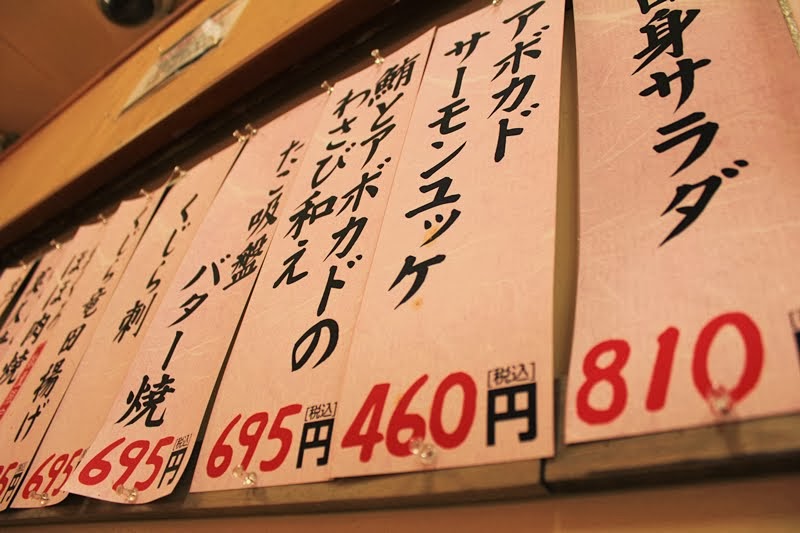 身サラダ
810
アボカド
サーモンユッケ
460円
[税込]
鮪とアボカドの
わさび和え
695円
[税込]
たこ吸盤
バター焼
695円
[税込]
くじら刺
695
くじら竜田揚げ